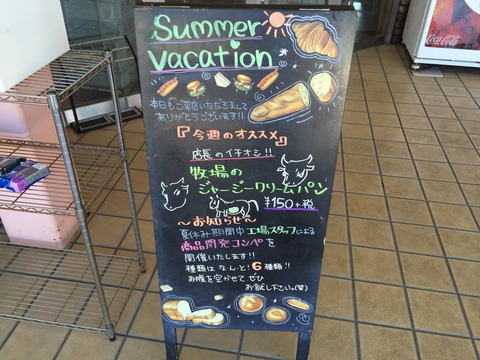 Summer
Vacation
本日もご来店いただきまして
ありがとうございます!!
『今週のオススメ』
店長のイチオシ!!
牧場の
ジャージークリームパン
¥150+税
～お知らせ～
夏休み期間中工場スタッフによる
商品開発コンペを
開催いたします!!
種類はなんと!6種類!!
お腹を空かせてぜひ
お試し下さい。(笑)
Coca-Cola